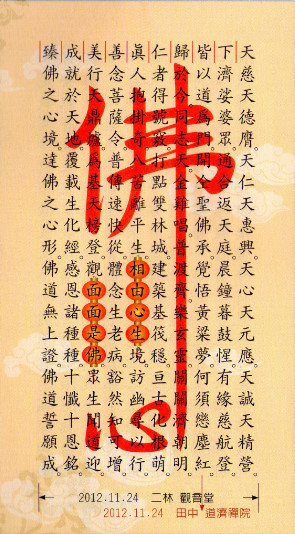 天慈天德膺。天仁天惠興。天心天元應。天誠天精營
下濟娑婆眾。通合返天庭。晨鐘暮鼓惺。有緣慈航登
皆以道為門。開全聖佛承。覺悟黃粱夢。何須戀塵紅
歸於今同志。天金雞唱。普渡齊樂玄靈關。關濟朝明
仁者得號竅。打點雙林城。建築基筏穩。亙古化根萌
真人抱掛奇。八苦離平生。相由心生境。訪幽尋 行
善念菩薩令。普傳速快從。體念生老病。豁然知可增
美行天鼎爐。為基天榜登。觀面面是佛。眾生聞道迎
成就於天地。覆載生化經。感恩諸種種。十懺十恩銘
臻佛之心境。達佛之心形。佛道無上證。佛道誓願成
佛心
2012.11.24 二林 觀音堂
2012.11.24 田中 道濟禪院